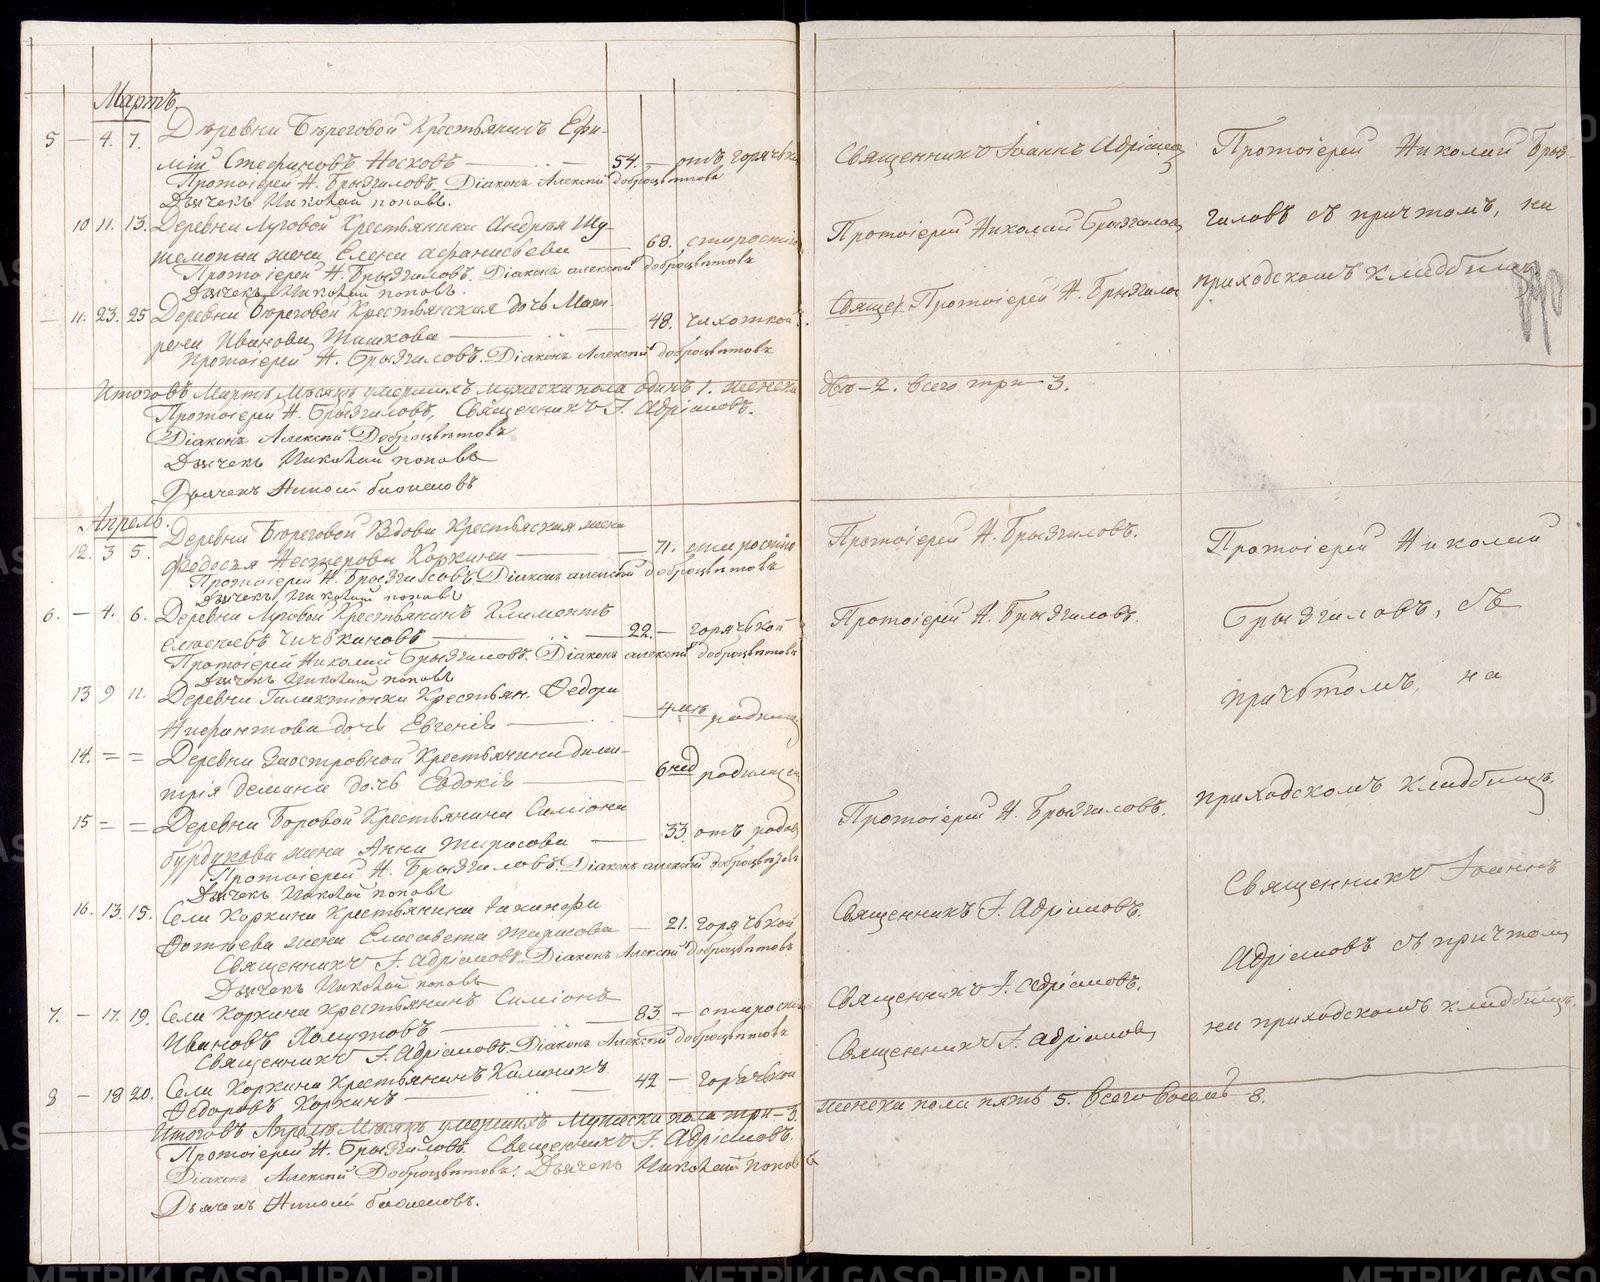 Мартъ
5 — 4. 7. Деревни Береговой Крестьянинъ Ефи-
мій Стефановъ Носковъ — 54. — отъ горячьки
Протоіерей Н. Брызгаловъ. Діаконъ Алексій Доброцветовъ
Дьячекъ Николай Поповъ.
10 11. 13. Деревни Луговой Крестьянина Андрея
жена Елена Афанасьева — 68. старостію
Протоіерей Н. Брызгаловъ. Діаконъ Алексій Доброцветовъ
Дьячекъ Николай Поповъ.
11. 23. 25 Деревни Береговой Крестьянская дочь
Иванова Тишкова — 48. чахоткой
Протоіерей Н. Брызгаловъ. Діаконъ Алексій Доброцветовъ
Итого въ Марте месяце умершихъ мужеска пола одинъ 1. женска
Протоіерей Н. Брызгаловъ, Священникъ І. Адріановъ.
Діаконъ Алексій Доброцветовъ
Дьячекъ Николай Поповъ
Дьячекъ
Апрель.
12. 3 5. Деревни Береговой Вдова Крестьянская жена
Федосья Нестерова Коркина — 71. старостію
Протоіерей Н. Брызгаловъ. Діаконъ Алексій Доброцветовъ
Дьячекъ Николай Поповъ
6. — 4. 6. Деревни Луговой Крестьянинъ Климонтъ
— 22. — горячькой
Протоіерей Николай Брызгаловъ. Діаконъ Алексій Доброцветовъ
Дьячекъ Николай Поповъ
13 9 11. Деревни Галактіонки Крестьян. Федора
дочь Евгенія — 4 родимца
14. = = Деревни Заостровной Крестьянина Дими-
трія Демина дочь Евдокія — 6 нед родимцем
15 = = Деревни Боровой Крестьянина Симіона
Бурдукова жена Анна Тарасова — 33. отъ родов
Протоіерей Н. Брызгаловъ. Діаконъ Алексій Доброцветовъ
Дьячекъ Николай Поповъ
16. 13. 15. Села Коркина Крестьянина
Фотеева жена Елисавета Тарасова — 21. горячькой
Священникъ І. Адріановъ. Діаконъ Алексій Доброцветовъ
Дьячекъ Николай Поповъ
7. — 17. 19. Села Коркина крестьянинъ Симіонъ
Ивановъ Хомутовъ — 83 — старостію
Священникъ І. Адріановъ. Діаконъ Алексій Доброцветовъ
8 — 18 20. Села Коркина крестьянинъ Калиникъ
Федоровъ Коркинъ — 42 — горячькой
Итого въ Апреле месяце умершихъ Мужеска пола три — 3.
Протоіерей Н. Брызгаловъ. Священникъ І. Адріановъ.
Діаконъ Алексій Доброцветовъ. Дьячекъ Николай Поповъ
Дьячекъ
Священникъ Іоаннъ Адріановъ
Протоіерей Николай Брызгаловъ
Священ Протоіерей Н. Брызгалов
две — 2. всего три — 3.
Протоіерей Н. Брызгаловъ.
Протоіерей Н. Брызгаловъ.
Протоіерей Н. Брызгаловъ.
Священникъ І. Адріановъ.
Священникъ І. Адріановъ.
Священникъ І. Адріановъ
женска пола пять 5. Всего восемь — 8.
Протоіерей Николай Брыз-
галовъ съ причтомъ, на
приходскомъ кладбище
Протоіерей Николай
Брызгаловъ, съ
причьтомъ, на
приходскомъ кладбище.
Священникъ Іоаннъ
Адріановъ съ причтомъ
на приходскомъ кладбище.
METRIKI.GASO-URAL.RU